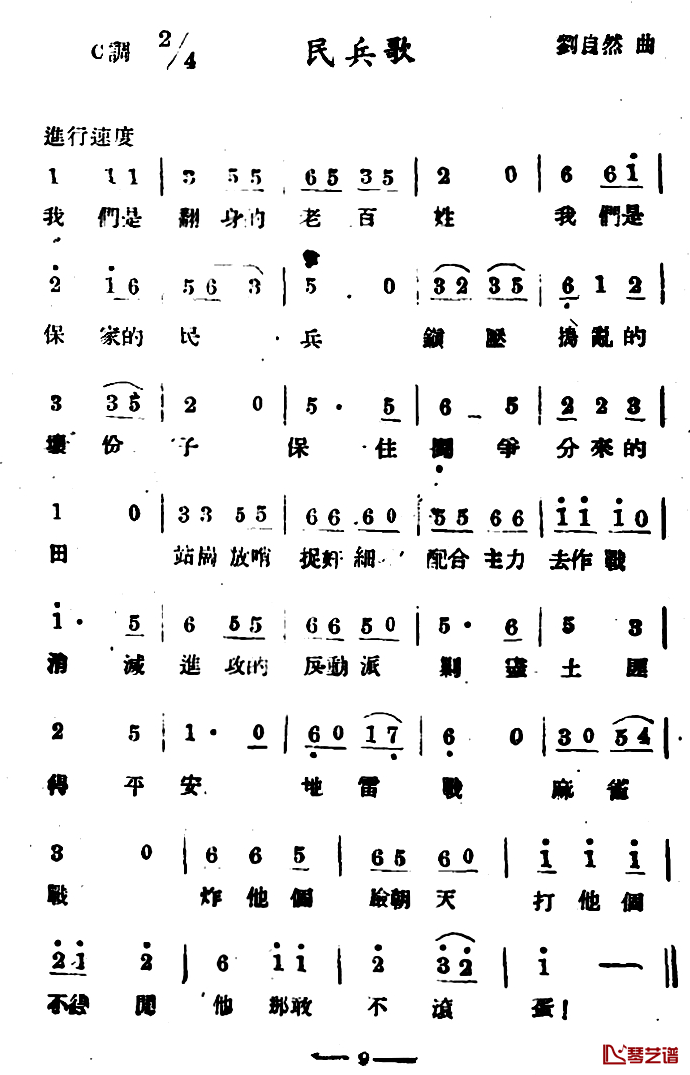 C調 2/4 民兵歌 劉自然 曲
進行速度
1 1 1 | 3 5 5 | 6 5 3 5 | 2 0 | 6 6 i
我們是 翻身的 老百姓 我們是
2 i 6 | 5 6 3 | 5 0 | 3 2 3 5 | 6 1 2
保家的民兵 鎮壓搗亂的
3 3 5 | 2 0 | 5 · 5 | 6 5 | 2 2 3
壞份子 保住鬪爭分來的
1 0 | 3 3 5 5 | 6 6 6 0 | 5 5 6 6 | i i i 0
田 站崗放哨 捉奸細 配合主力去作戰
i · 5 | 6 5 5 | 6 6 5 0 | 5 · 6 | 5 3
消滅進攻的反動派 剿盡土匪
2 5 | 1 · 0 | 6 0 1 7 | 6 0 | 3 0 5 4
得平安 地雷戰 麻雀
3 0 | 6 6 5 | 6 5 6 0 | i i i
戰 炸他個 臉朝天 打他個
2 i 2 | 6 i i | 2 3 2 | i —
不得閒 他那敢不滾蛋!
9
琴艺谱